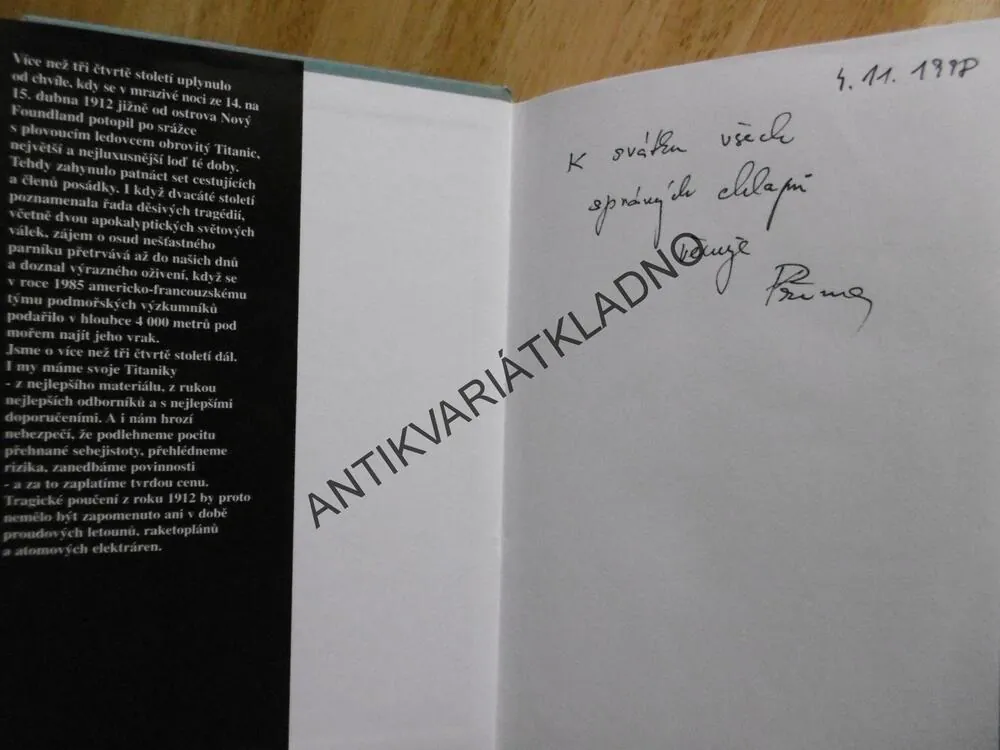 Více než tři čtvrtě století uplynulo
od chvíle, kdy se v mrazivé noci ze 14. na
15. dubna 1912 jižně od ostrova Nový
Foundland potopil po srážce
s plovoucím ledovcem obrovitý Titanic,
největší a nejluxusnější loď té doby.
Tehdy zahynulo patnáct set cestujících
a členů posádky. I když dvacáté století
poznamenala řada děsivých tragédií,
včetně dvou apokalyptických světových
válek, zájem o osud nešťastného
parníku přetrvává až do našich dnů
a doznal výrazného oživení, když se
v roce 1985 americko-francouzskému
týmu podmořských výzkumníků
podařilo v hloubce 4 000 metrů pod
mořem najít jeho vrak.
Jsme o více než tři čtvrtě století dál.
I my máme svoje Titaniky
- z nejlepšího materiálu, z rukou
nejlepších odborníků a s nejlepšími
doporučeními. A i nám hrozí
nebezpečí, že podlehneme pocitu
přehnané sebejistoty, přehlédneme
rizika, zanedbáme povinnosti
- a za to zaplatíme tvrdou cenu.
Tragické poučení z roku 1912 by proto
nemělo být zapomenuto ani v době
proudových letounů, raketoplánů
a atomových elektráren.
4. 11. 1998
K svátku všech
správných chlapů
věnuje
ANTIKVARIÁTKLADNO